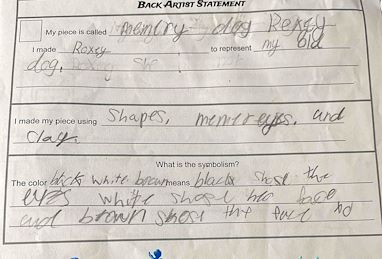 BACK ARTIST STATEMENT
My piece is called memory dog Roxxy
I made Roxxy to represent my old
dog.
I made my piece using Shapes, and
clay.
What is the symbolism?
The color black white brown means black shose the
eyes white shose her face
and brown shose the